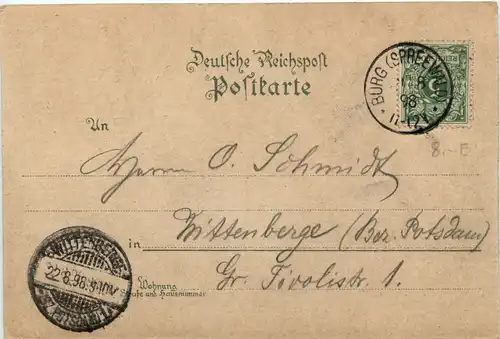 Deutsche Reichspost
Postkarte
BURG (SPREEWALD)
98
11-12V.
8.-E
An
Herrn O. Schmidt
in Wittenberge (Bez. Potsdam)
Wohnung
Straße und Hausnummer
Gr. Tivolistr. 1.
WITTENBERGE
22.8.98.
BZ. POTSDAM